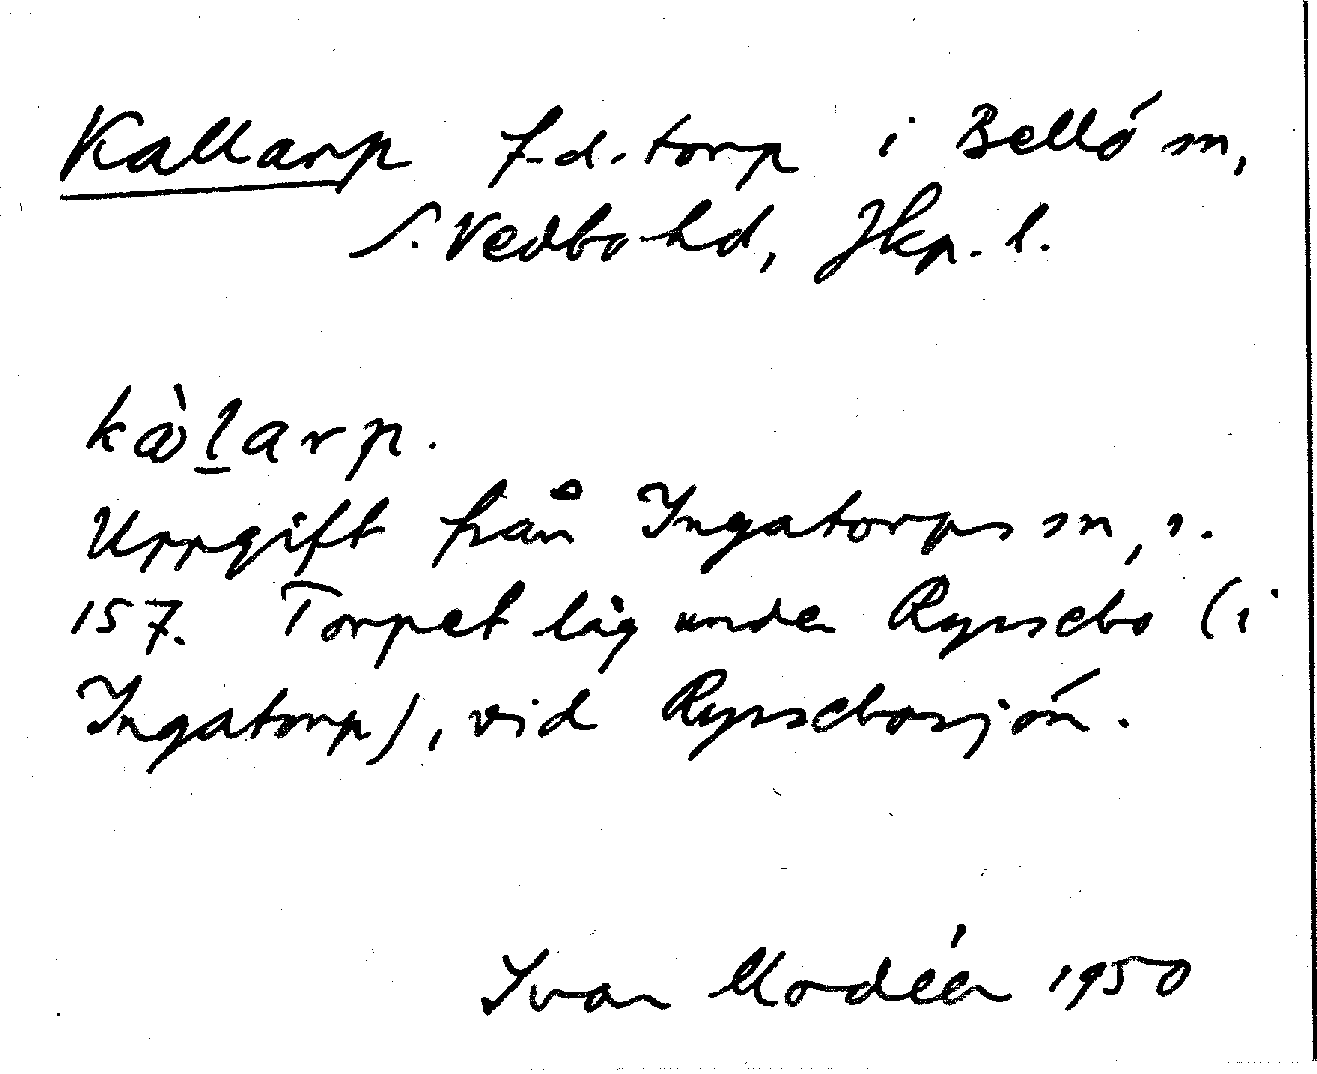 Kallarp f.d. torp i Bellö sn,
S. Vedbo hd, Jkp. l.
kàl̲arp.
Uppgift från Ingatorps sn, s.
157. Torpet låg under Ryssebo (i
Ingatorp), vid Ryssebosjön.
Ivar Modéer 1950